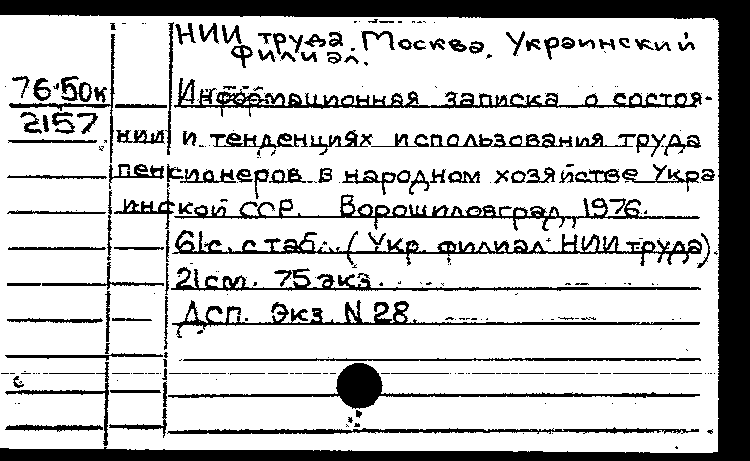 НИИ труда. Москва. Украинский
филиал.
76-50к
2157
Информационная записка о состоя-
нии и тенденциях использования труда
пенсионеров в народном хозяйстве Укра
инской ССР. Ворошиловград, 1976.
61с. с табл. (Укр. филиал НИИ труда)
21см. 75 экз.
Дсп. Экз. N 28.